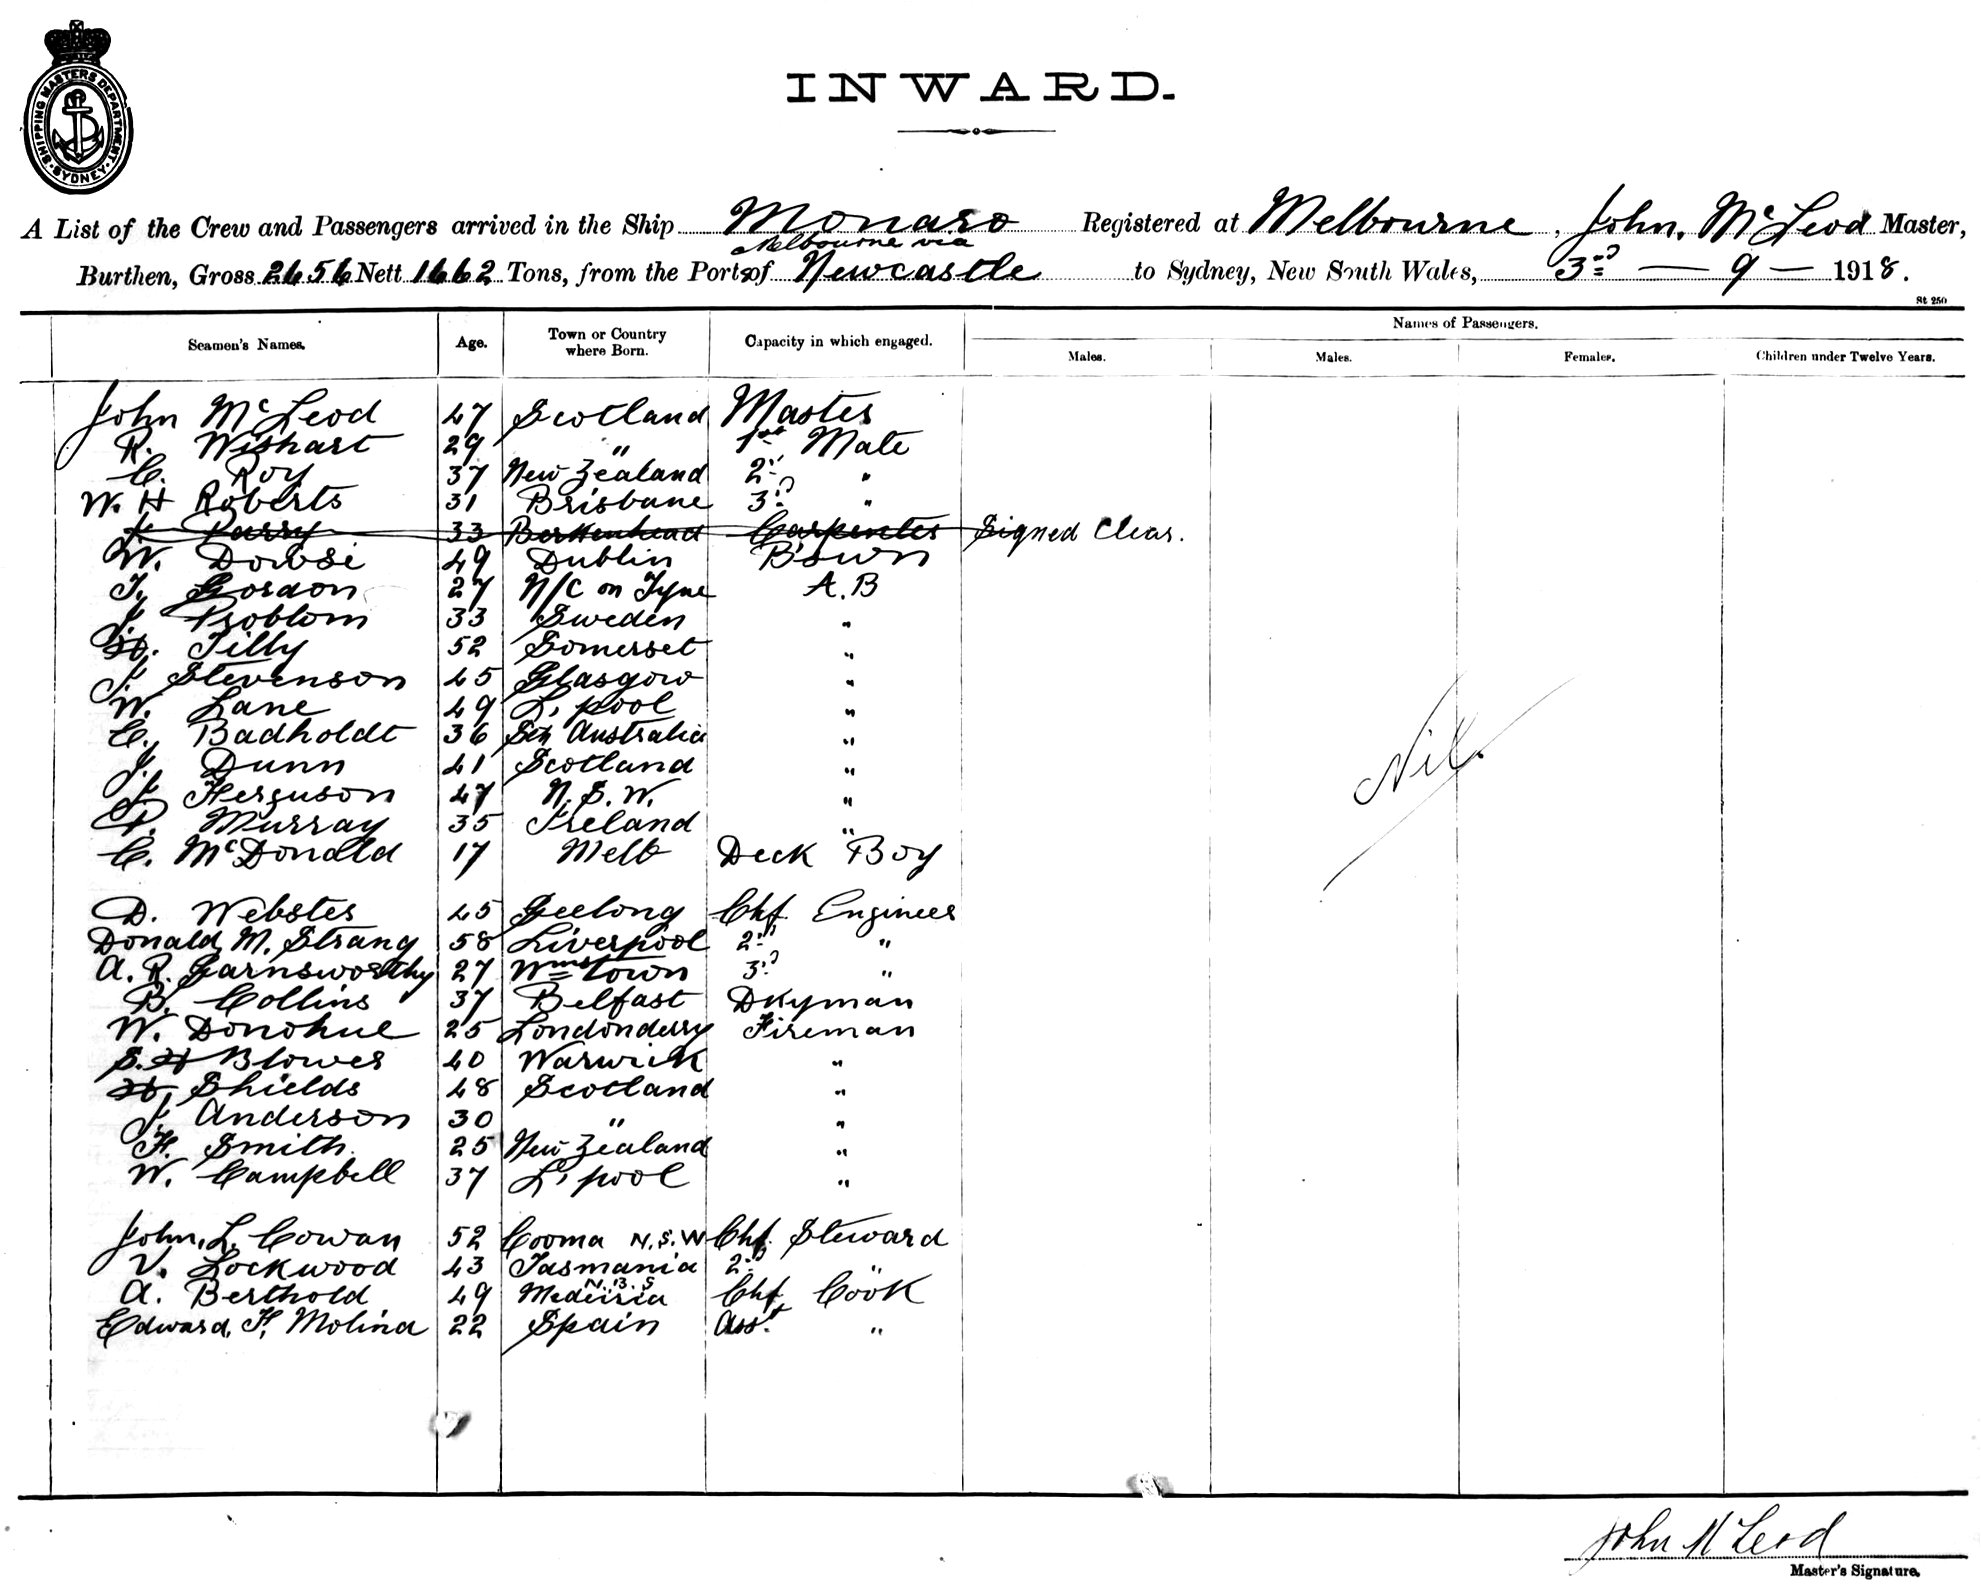 SHIPPING MASTERS DEPARTMENT · SYDNEY ·
INWARD.
A List of the Crew and Passengers arrived in the Ship Monaro Registered at Melbourne, John. McLeod Master,
Melbourne via
Burthen, Gross 2656 Nett 1662 Tons, from the Ports of Newcastle to Sydney, New South Wales, 3rd — 9 — 1918.
St 250
Seamen's Names. Age. Town or Country where Born. Capacity in which engaged. Names of Passengers.
Males. Males. Females. Children under Twelve Years.
John McLeod 47 Scotland Master
R. Wishart 29 " 1st Mate
C. Roy 37 New Zealand 2nd "
W. H Roberts 31 Brisbane 3rd "
J. Parry 33 Berkenhead Carpenter Signed Clear.
W. Dowsi 49 Dublin B'swn
T. Gordon 27 N/C on Tyne A.B
J. Problom 33 Sweden "
H. Tilly 52 Somerset "
J. Stevenson 45 Glasgow "
W. Lane 49 L'pool "
C. Badholdt 36 Sth Australia "
J. Dunn 41 Scotland "
J. Ferguson 47 N.S.W. "
P. Murray 35 Ireland "
C. McDonald 17 Melb Deck Boy
Nil.
D. Webster 45 Geelong Chf Engineer
Donald M. Strang 58 Liverpool 2nd "
A. R. Garnsworthy 27 Wmstown 3rd "
B. Collins 37 Belfast Dkyman
W. Donohue 25 Londonderry Fireman
S. H Blower 40 Warwick "
H. Shields 48 Scotland "
J. Anderson 30 " "
F. Smith. 25 New Zealand "
W. Campbell 37 L'pool "
John. L. Cowan 52 Cooma N.S.W Chf. Steward
V. Lockwood 43 Tasmania 2nd "
N.B.S
A. Berthold 49 Medeiria Chf Cook
Edward. F. Molina 22 Spain Asst. "
John McLeod
Master's Signature.